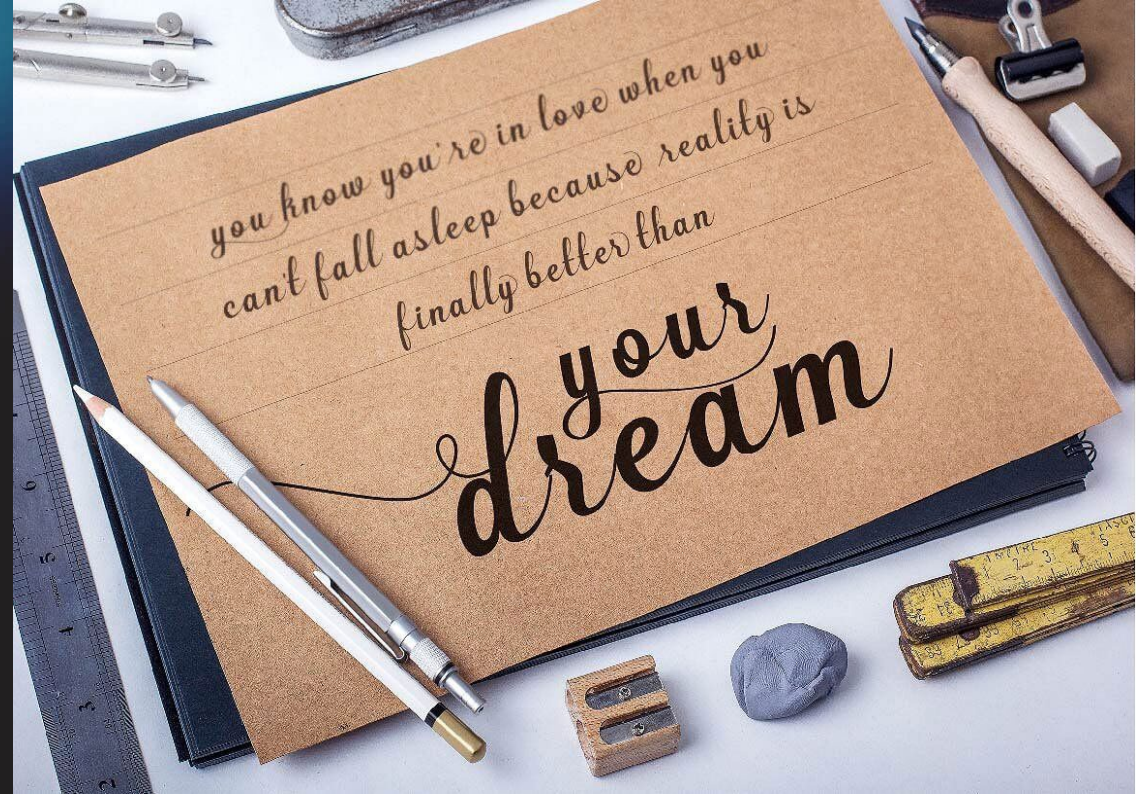 you know you're in love when you
can't fall asleep because reality is
finally better than
your
dream
6
5
4
3
2
2 3 4 5